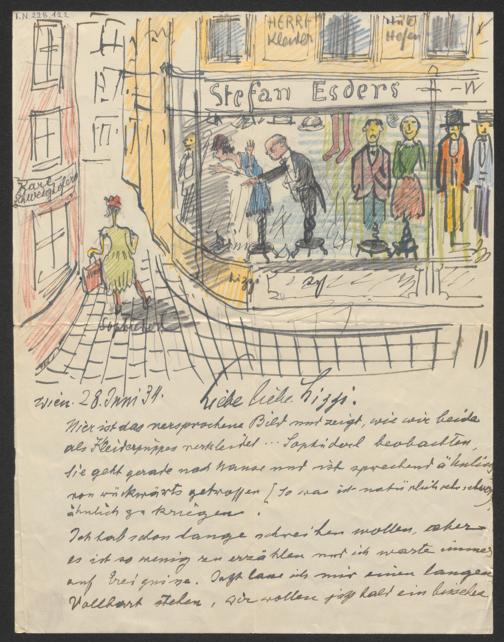 I.N. 228.122
HERRN
Kleider
Hüte
Hosen
Stefan Esders
Karl
Schweighofer
Lizzi
Sophiederl
Wien. 28. Juni 34.
Liebe liebe Lizzi.
Hier ist das versprochene Bild und zeigt, wie wir beide
als Kleiderpuppen verkleidet ... Sophiederl beobachten,
sie geht gerade nach Hause und ist sprechend ähnlich
von rückwärts getroffen (So was ist natürlich sehr schwer
ähnlich zu kriegen.
Ich hab schon lange schreiben wollen, aber
es ist so wenig zu erzählen und ich warte immer
auf Ereignisse. Jetzt lass ich mir einen langen
Vollbart stehen, wir wollen jetzt bald ein bischen